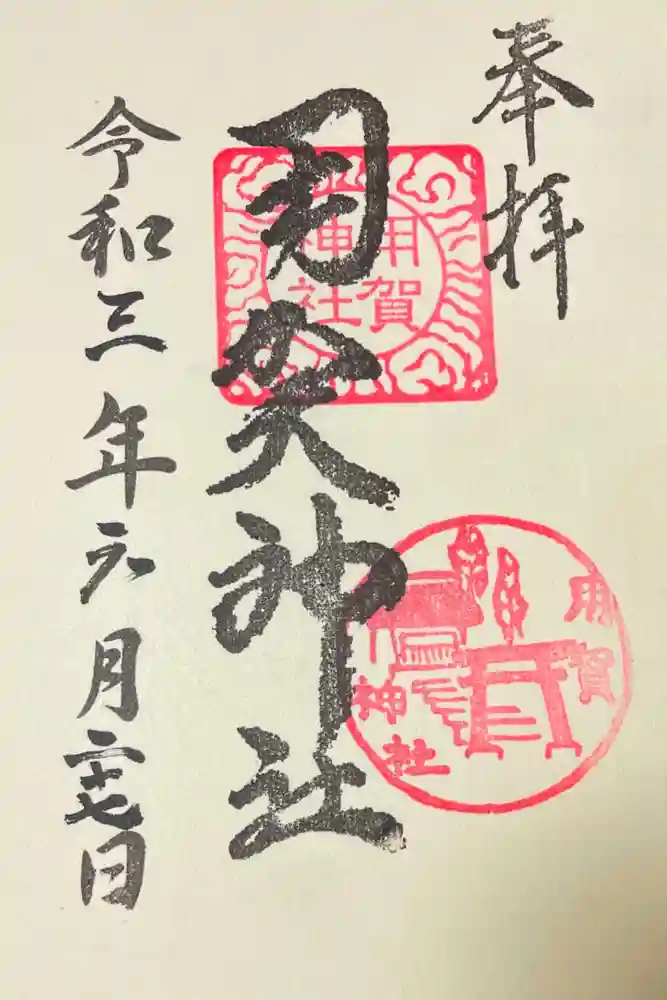 奉拝
用賀神社
令和三年六月二十七日
用賀
神社
用賀
神社